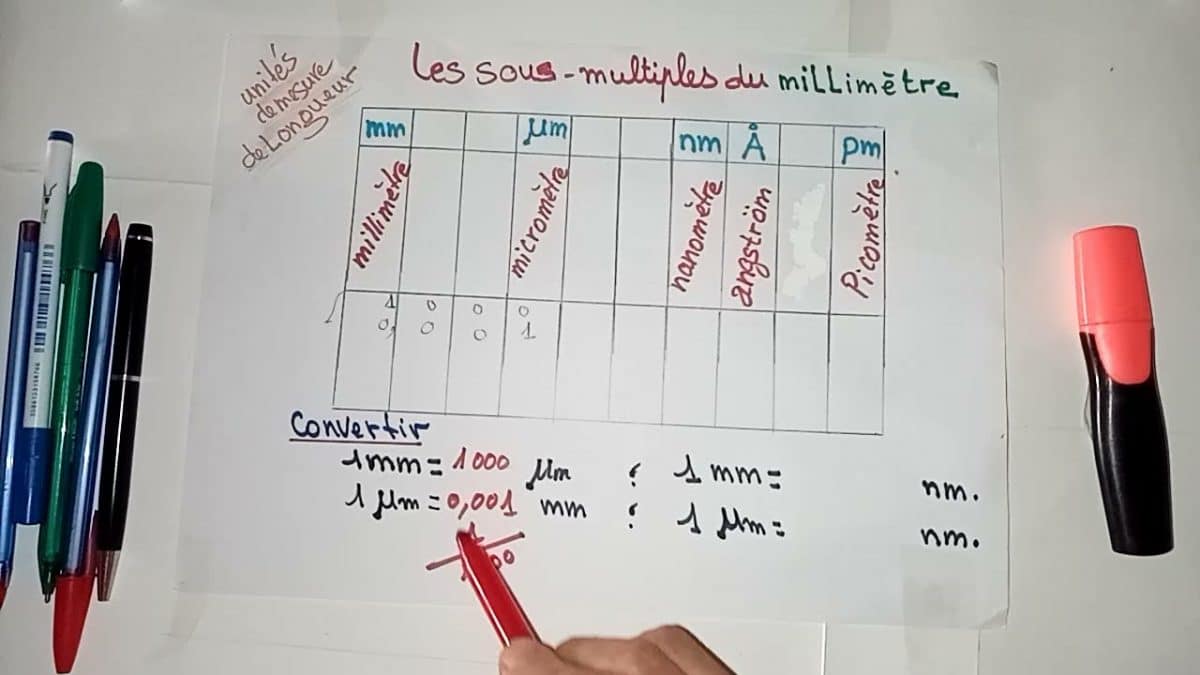 unités
de mesure
de Longueur
Les sous-multiples du millimètre
mm µm nm Å pm
millimètre micromètre nanomètre angström Picomètre
1 0 0 0
0, 0 0 1
Convertir
1mm = 1000 µm ; 1 mm = nm.
1 µm = 0,001 mm ; 1 µm = nm.
1